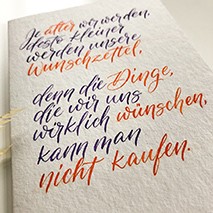 Je älter wir werden,
desto kleiner
werden unsere
Wunschzettel,
denn die Dinge,
die wir uns
wirklich wünschen,
kann man
nicht kaufen.